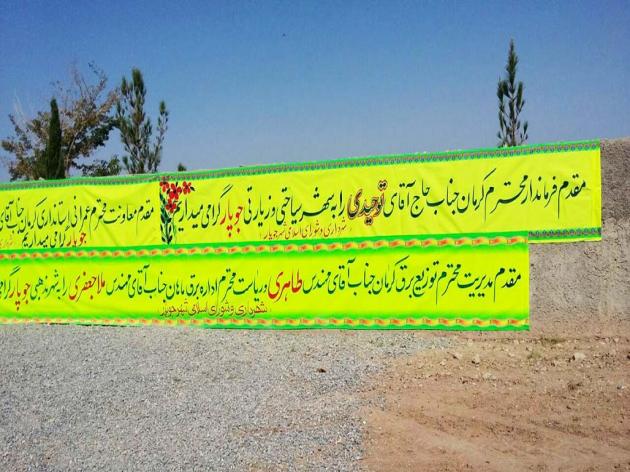 مقدم فرماندار محترم کرمان جناب حاج آقای توحیدی را به شهر سیاحتی و زیارتی جوپار گرامی میداریم
شهرداری و شورای اسلامی شهر جوپار
مقدم معاونت محترم عمرانی استانداری کرمان جناب آقای
جوپار گرامی میداریم
مقدم مدیریت محترم توزیع برق کرمان جناب آقای مهندس طاهری و ریاست محترم اداره برق ماهان جناب آقای مهندس ملاجعفری را به شهر مذهبی جوپار گرامی
شهرداری و شورای اسلامی شهر جوپار